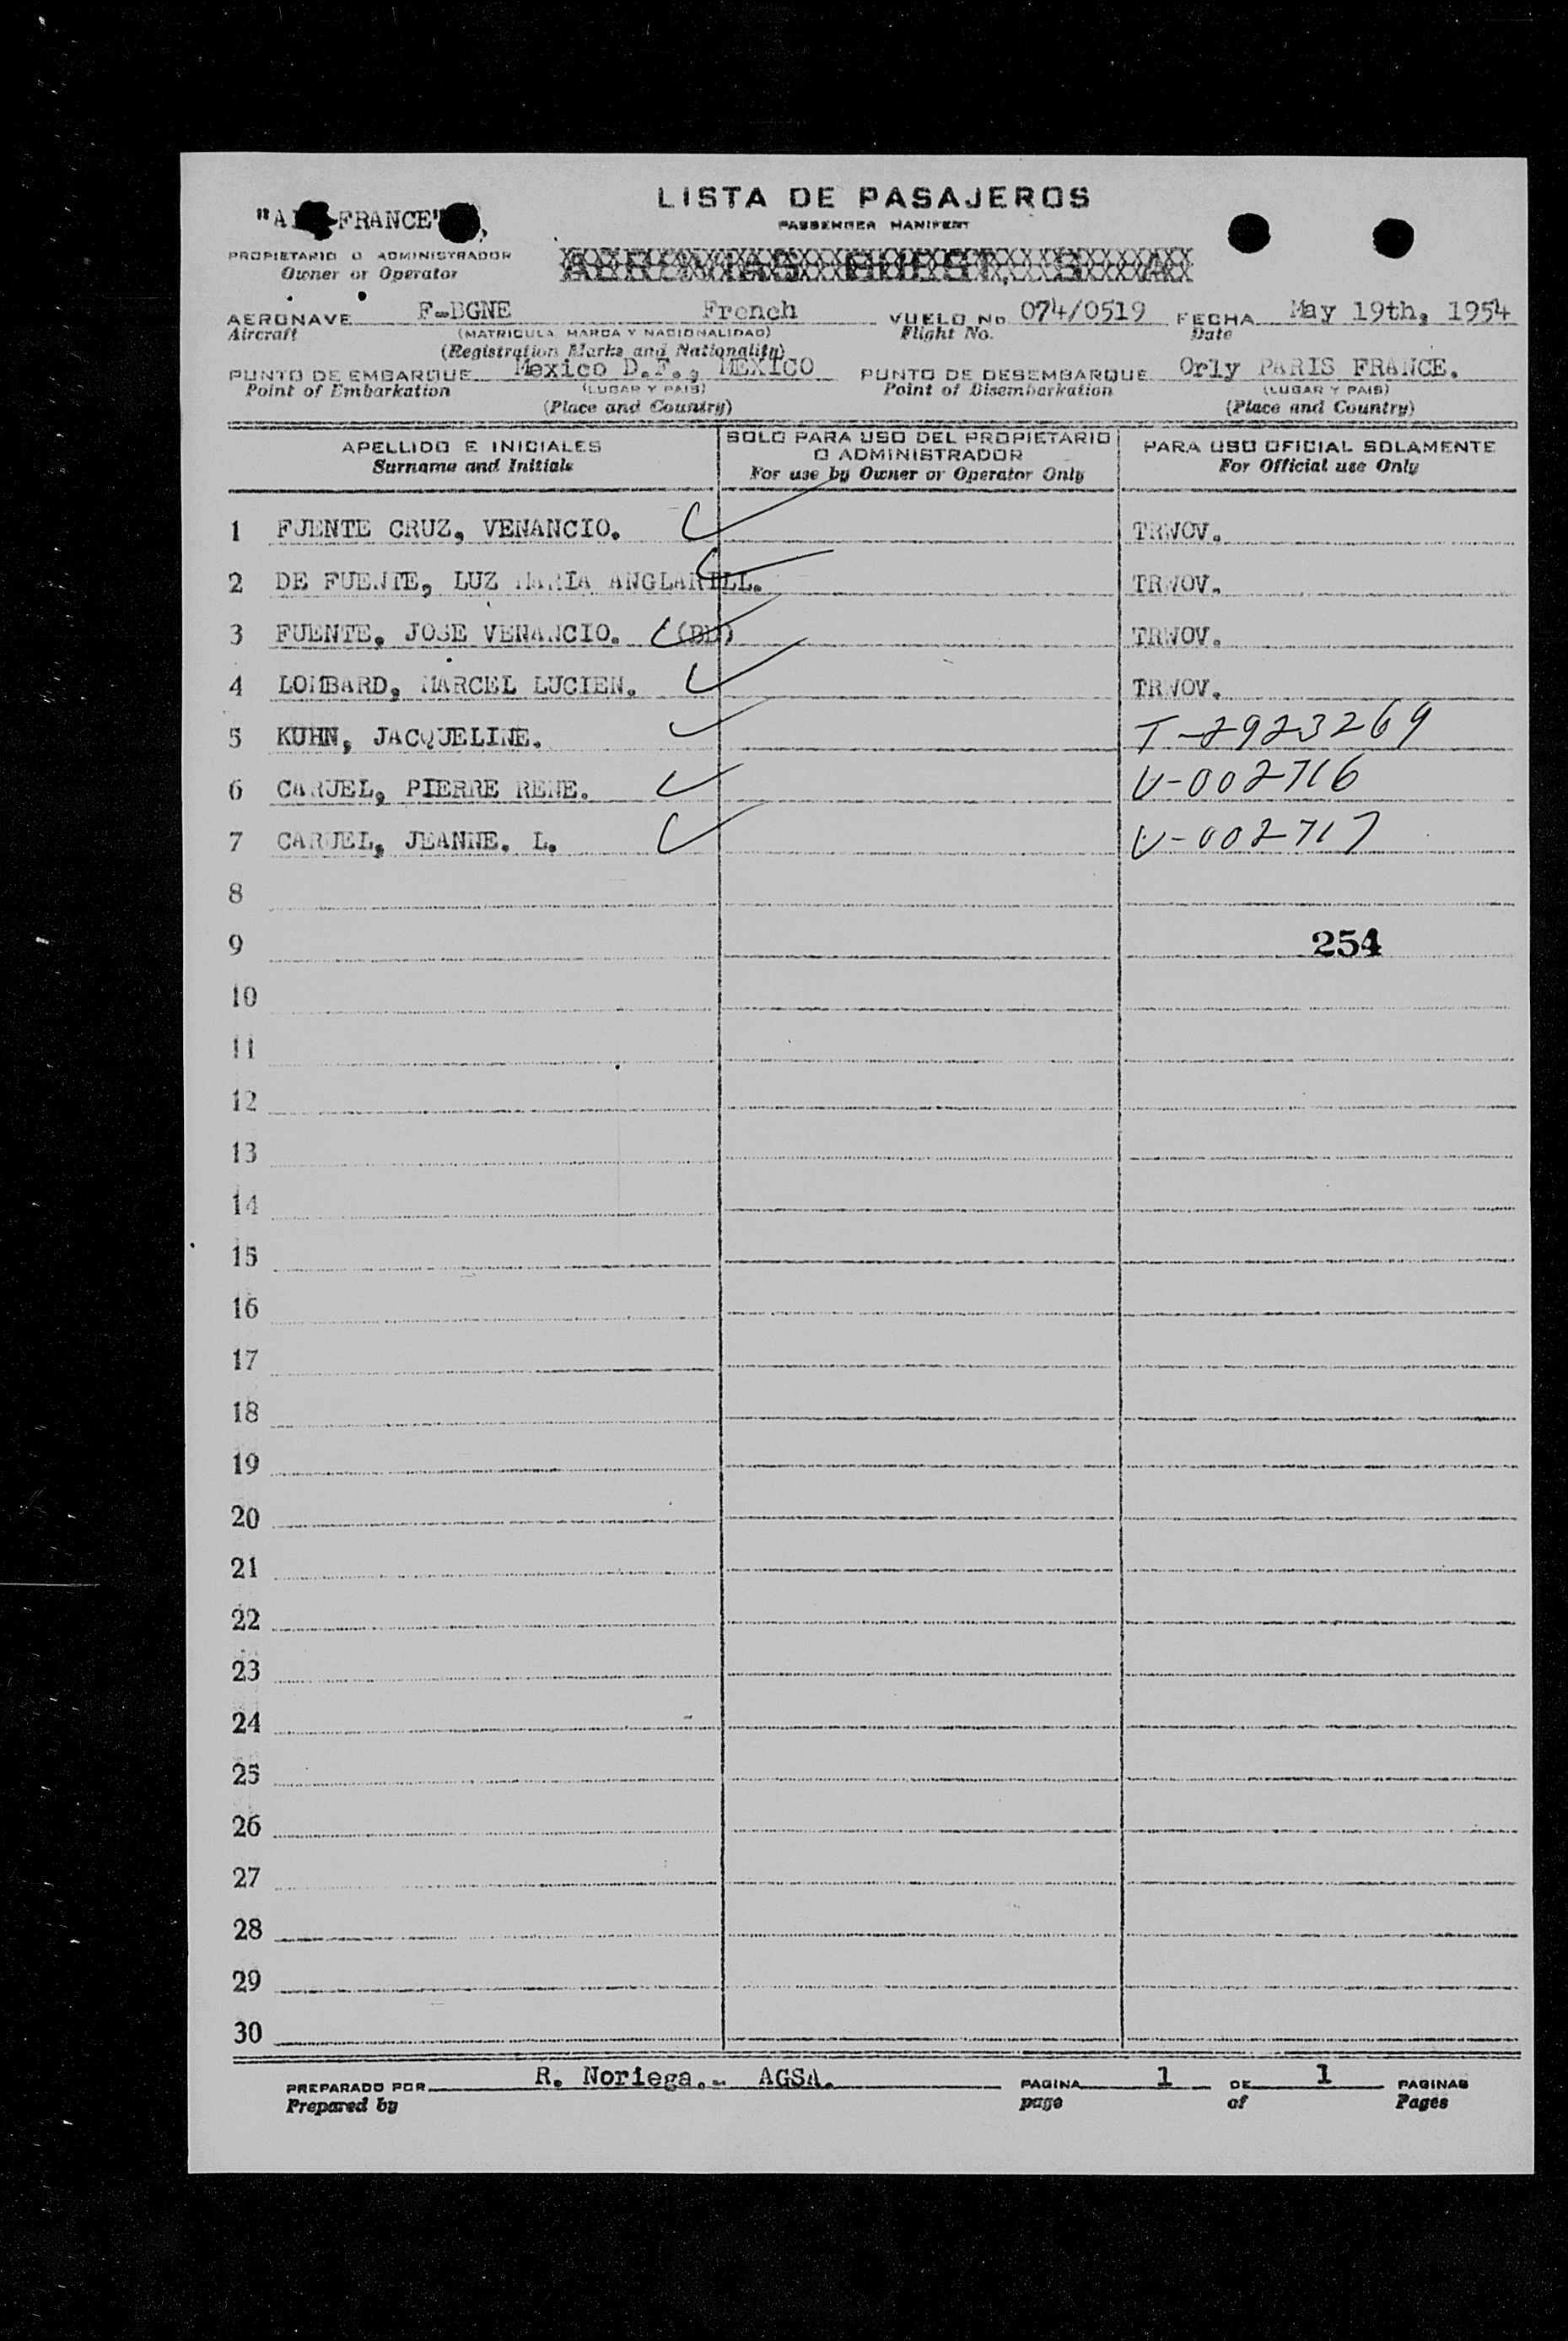 LISTA DE PASAJEROS
PASSENGER MANIFEST
FRANCE"
PROPIETARIO O ADMINISTRADOR
Owner or Operator
AEROVIAS GUEST, S. A.
AERONAVE F-BGNE French VUELO No 074/0519 FECHA May 19th, 1954
Aircraft (MATRICULA MARCA Y NACIONALIDAD) Flight No. Date
(Registration Marks and Nationality)
PUNTO DE EMBARQUE Mexico D.F., MEXICO PUNTO DE DESEMBARQUE Orly PARIS FRANCE.
Point of Embarkation (LUGAR Y PAIS) Point of Disembarkation (LUGAR Y PAIS)
(Place and Country) (Place and Country)
APELLIDO E INICIALES SOLO PARA USO DEL PROPIETARIO O ADMINISTRADOR PARA USO OFICIAL SOLAMENTE
Surname and Initials For use by Owner or Operator Only For Official use Only
1 FUENTE CRUZ, VENANCIO. TRWOV.
2 DE FUENTE, LUZ MARIA ANGLARILL. TRWOV.
3 FUENTE, JOSE VENANCIO. (BB) TRWOV.
4 LOMBARD, MARCEL LUCIEN. TRWOV.
5 KUHN, JACQUELINE. T-2923269
6 CARUEL, PIERRE RENE. V-002716
7 CARUEL, JEANNE. L. V-002717
8
9 254
10
11
12
13
14
15
16
17
18
19
20
21
22
23
24
25
26
27
28
29
30
PREPARADO POR R. Noriega.- AGSA. PAGINA 1 DE 1 PAGINAS
Prepared by page of Pages